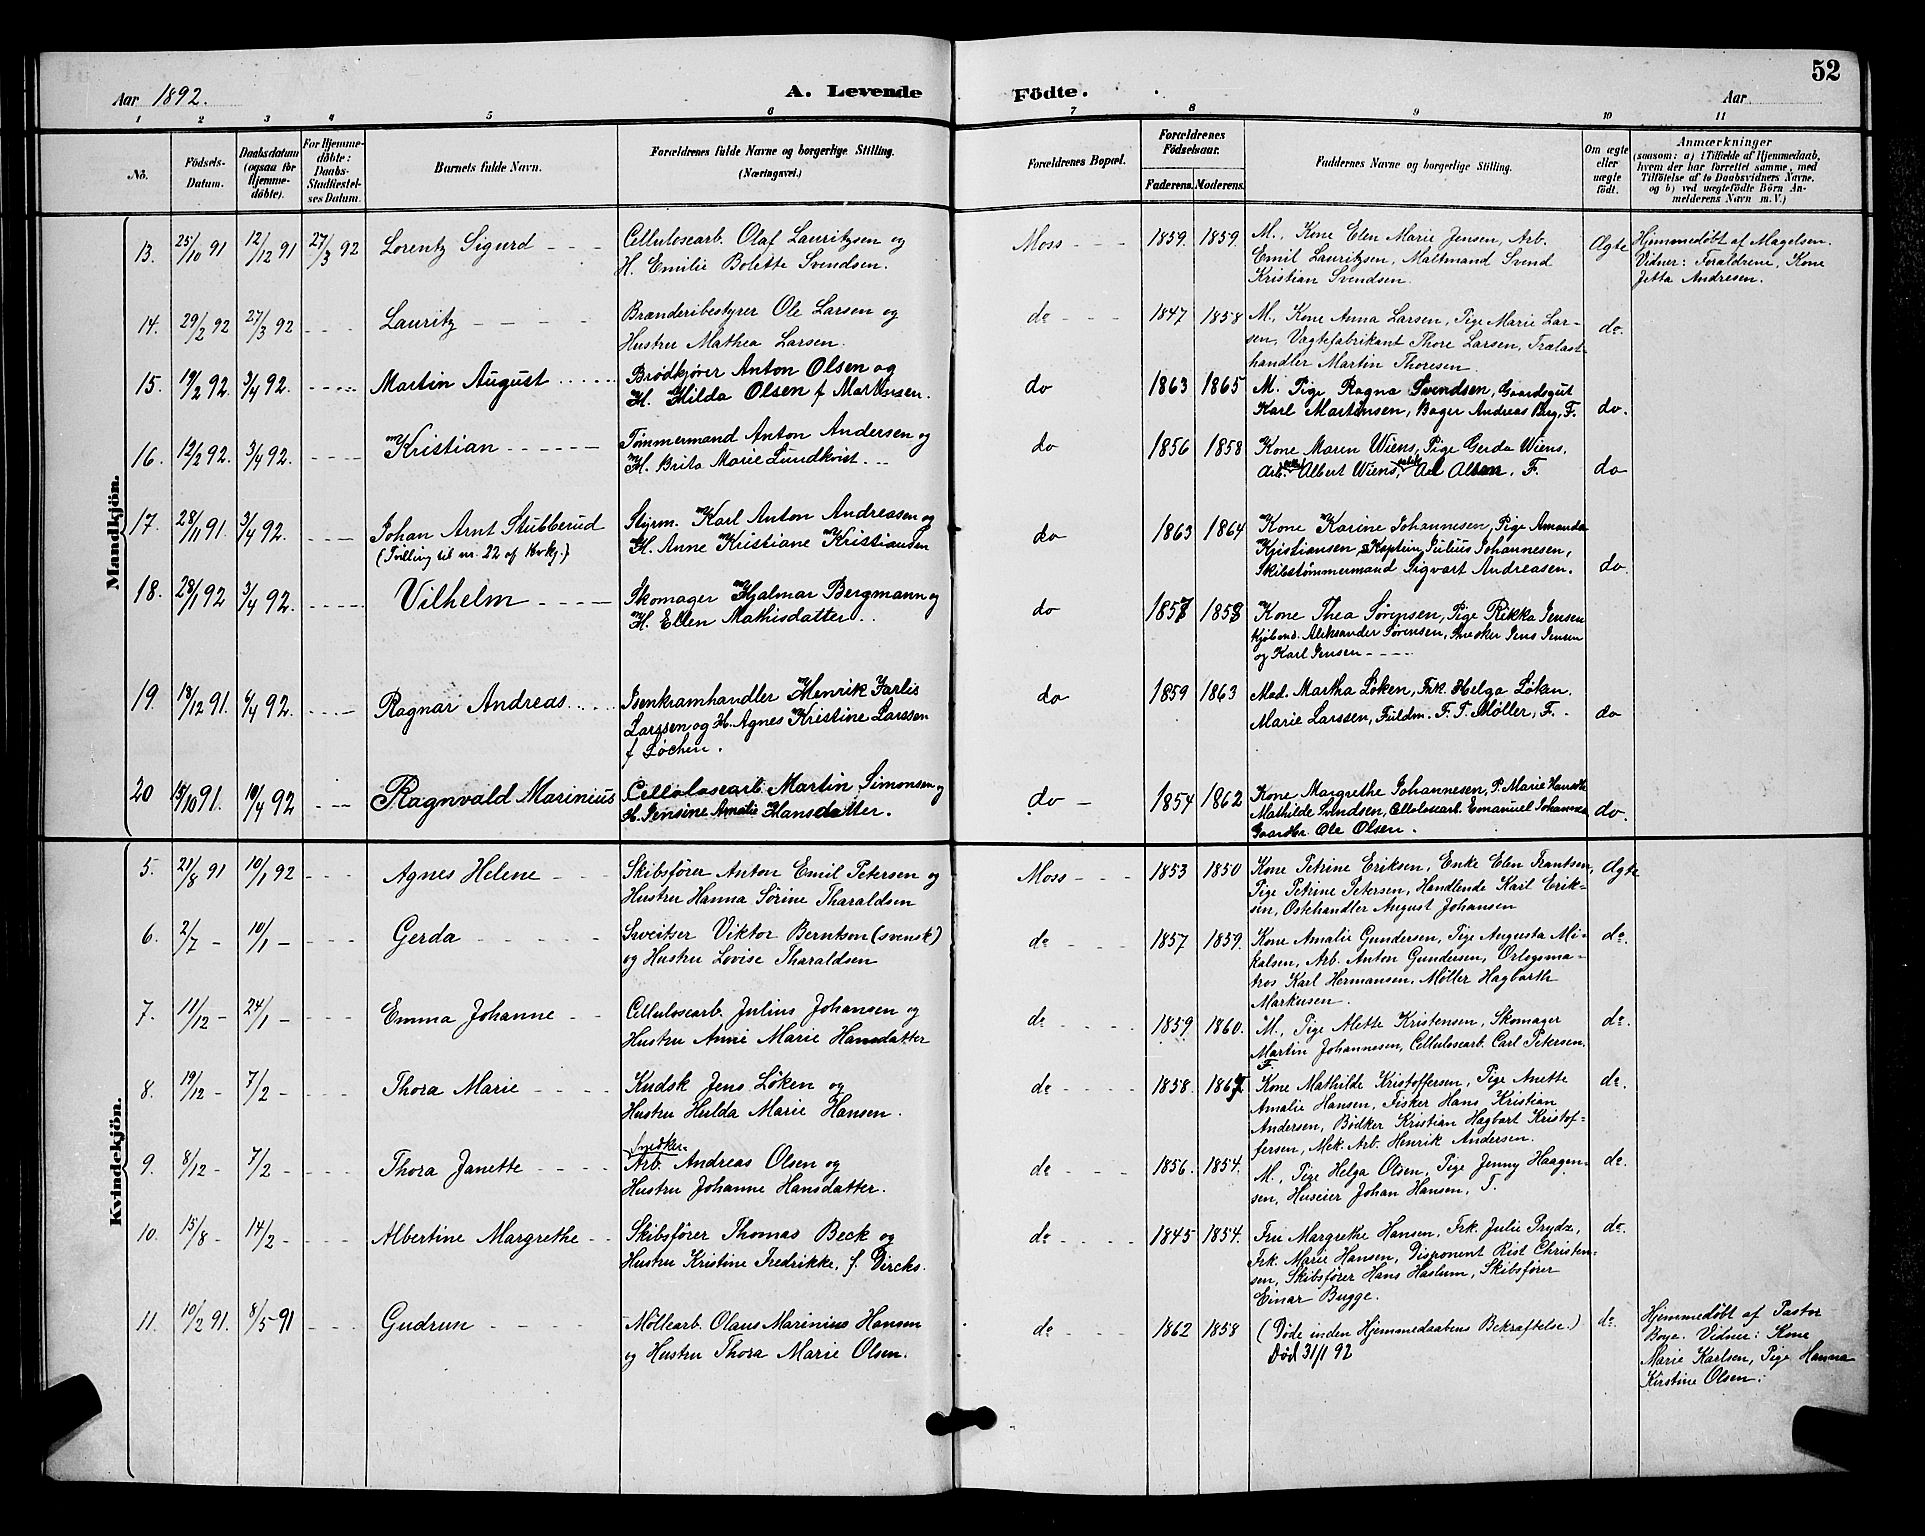 52
Aar 1892.
A. Levende Födte.
Aar
1 2 3 4 5 6 7 8 9 10 11
No.
Födsels-Datum.
Daabsdatum (ogsaa for Hjemme-döbte).
For Hjemme-döbte: Daabs-Stadfæstel-ses Datum.
Barnets fulde Navn.
Forældrenes fulde Navne og borgerlige Stilling.
(Næringsvei.)
Forældrenes Bopæl.
Forældrenes Födselsaar.
Faderens. Moderens.
Faddernes Navne og borgerlige Stilling.
Om ægte eller uægte födt.
Anmærkninger
(saasom: a) i Tilfælde af Hjemmedaab,
hvem der har forrettet samme, med
Tilföielse af to Daabsvidners Navne.
og b) ved uægtefödte Börn An-
melderens Navn m. V.)
Mandkjön.
13. 25/10 91 12/12 91 27/3 92 Lorentz Sigurd - - -
Cellulosearb. Olaf Lauritzsen og
H. Emilie Bolette Svendsen.
Moss - - - 1859. 1859.
M., Kone Elen Marie Jensen, Arb.
Emil Lauritzsen, Maltmand Svend
Kristian Svendsen.
Ægte
Hjemmedøbt af Magelsen.
Vidner: Forældrene, Kone
Jetta Andresen.
14. 29/2 92 27/3 92 - - - Lauritz - - - -
Brænderibestyrer Ole Larsen og
Hustru Mathea Larsen.
do - - - 1847 1858
M., Kone Anna Larsen, Pige Marie Lar-
sen, Vægtefabrikant Thore Larsen, Trælast-
handler Martin Thoresen.
do.
15. 19/2 92. 3/4 92. - - - Martin August . . . . .
Brödkjører Anton Olsen og
H. Hilda Olsen f Markusen.
do 1863 1865
M. Pige Ragna Svendsen, Gaardsgut
Karl Martinsen, Bager Andreas Berg, F.
do.
16. 12/2 92. 3/4 92. - - - Kristian - - - - -
Tømmermand Anton Andersen og
H. Brita Marie Lundkvist - -
do 1856 1858
Kone Maren Wiens, Pige Gerda Wiens,
Arb. Albert Wiens, Olsen, F.
do
17. 28/11 91. 3/4 92. - - - Johan Arnt Stubberud
(Tvilling til nr. 22 af Kvkj.)
Styrm. Karl Anton Andreasen og
H. Anne Kristiane Kristiansen
do 1863 1864
Kone Karine Johannesen, Pige Amanda
Kristiansen, Kaptein Julius Johannesen,
Skibstømmermand Sigvart Andreasen.
do.
18. 28/1 92 3/4 92. - - - Vilhelm - - - -
Skomager Hjalmar Bergmann og
H. Ellen Mathisdatter. .
do 1857 1858
Kone Thea Sørensen, Pige Rikka Jensen
Kjøbmd. Aleksander Sørensen, Snedker Jens Jensen
og Karl Jensen - - - -
19. 18/12 91. 6/4 92. - - - Ragnar Andreas. . . . .
Isenkramhandler Henrik Jarlis
Larssen og H. Agnes Kristine Larssen
f Løchen.
do 1859 1863
Mad. Martha Løken, Frk. Helga Løken.
Marie Larssen, Fuldm. F. T. Møller, F. -
do
20 15/10 91. 10/4 92 - - - Ragnvald Marinius
Cellulosearb. Martin Simonsen og
H. Jensine Amalie Hansdatter.
do - 1854 1862
Kone Margrethe Johannesen, P. Marie
Mathilde Svendsen, Cellulosearb. Emanuel Johannes
Gaardbr. Ole Olsen.
do.
Kvindekjön.
5. 21/8 91 10/1 92 - - - Agnes Helene - - -
Skibsfører Anton Emil Petersen og
Hustru Hanna Sørine Tharaldsen
Moss - - - 1853 1850
Kone Petrine Eriksen, Enke Elen Frantsen,
Pige Petrine Petersen, Handlende Karl Erik-
sen, Ostehandler August Johansen
Ægte
6. 2/7 - 10/1 - - - - Gerda - - - - -
Sweitser Viktor Berntson (svensk)
og Hustru Lovise Tharaldsen
do - - - 1857 1859.
Kone Amalie Gundersen, Pige Augusta Mi-
kalsen, Arb. Anton Gundersen, Orlogsma-
tros Karl Hermansen, Møller Hagbarth
Markusen.
do.
7. 11/12 - 24/1 - - - - Emma Johanne - -
Cellulosearb. Julius Johansen og
Hustru Anne Marie Hansdatter
do - - - - 1859. 1860.
M., Pige Alette Kristensen, Skomager
Martin Johannesen, Cellulosearb. Carl Petersen.
F.
do.
8. 19/12 - 7/2 - - - - Thora Marie - - - -
Kudsk Jens Løken og
Hustru Hulda Marie Hansen.
do - - - - 1858. 1867
Kone Mathilde Kristoffersen, Pige Anette
Amalie Hansen, Fisker Hans Kristian
Andersen, Bødker Kristian Hagbart Kristof-
fersen, Mek. Arb. Henrik Andersen.
do.
9. 8/12 - 7/2 - - - - Thora Janette - - - -
Snedker-
Arb. Andreas Olsen og
Hustru Johanne Hansdatter.
do - - - 1856. 1854.
M., Pige Helga Olsen, Pige Jenny Haagen-
sen, Huseier Johan Hansen, F.
do.
10. 15/8 - 14/2 - - - - Albertine Margrethe - -
Skibsfører Thomas Beck og
Hustru Kristine Fredrikke, f. Dircks.
do - - - - 1845 1854.
Fru Margrethe Hansen, Frk. Julie Prydz,
Frk. Marie Hansen, Disponent Rist Christen-
sen, Skibsfører Hans Haslum, Skibsfører
Einar Bugge.
do.
11. 10/2 91. 8/5 91 - - - Gudrun - - - -
Møllearb. Olaus Marinius Hansen
og Hustru Thora Marie Olsen.
do - - - - 1862 1858
(Døde inden Hjemmedaabens Bekræftelse.)
Død 31/1 92
do.
Hjemmedøbt af Pastor
Boye. Vidner: Kone
Marie Karlsen, Pige Hanna
Kirstine Olsen.